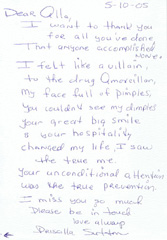 5-10-05
Dear Ella,
I want to thank you
for all you've done,
That anyone accomplished
none.
I felt like a villain,
to the drug Amoxicillan,
My face full of pimples,
You couldn't see my dimples
your great big smile
& your hospitality
changed my life, I saw
the true me.
Your unconditional attention
was the true prevention.
I miss you so much
Please be in touch
love always